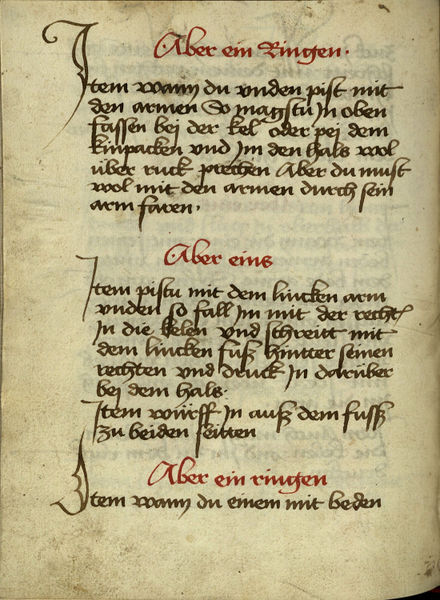 Aber ein Ringen.
Item wann du vnden pist mit
den armen So magstu In oben
fassen bei der kel oder pei dem
kinpacken vnd Im den hals wol
über ruck prechen Aber du must
wol mit den armen durch sein
arm faren.
Aber eins
Item pistu mit dem lincken arm
vnden so fall Im mit der recht
In die kelen vnd schreitt mit
dem lincken fuß hintter seinen
rechten vnd druck In darüber
bei dem hals.
Item würff In auß dem fusß
zu beiden seitten
Aber ein ringen
Item wann du einem mit beden